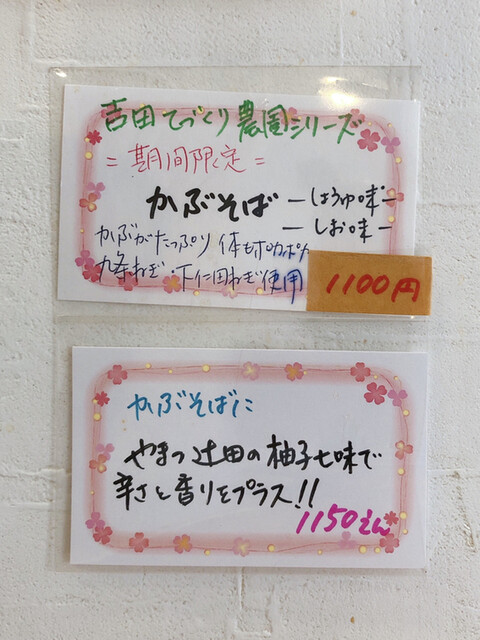 吉田てづくり農園シリーズ
=期間限定=
かぶそば
ーしょうゆ味ー
ーしお味ー
かぶがたっぷり 体もポカポカ
九条ねぎ・下仁田ねぎ使用
1100円
かぶそばに
やまつ辻田の柚子七味で
辛さと香りをプラス!!
1150えん